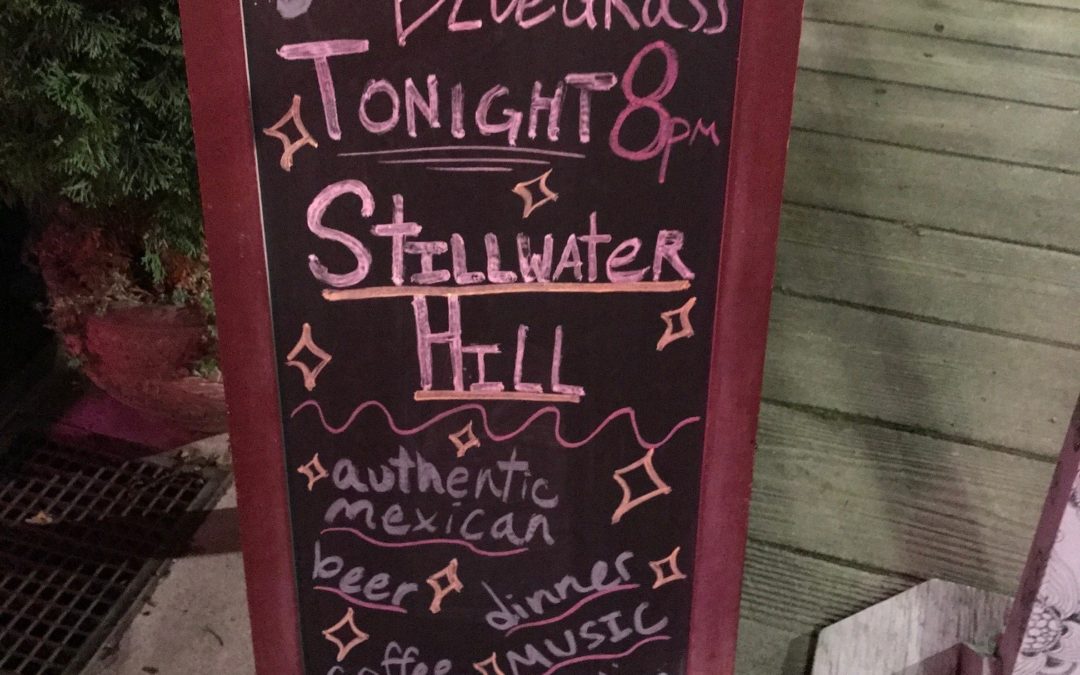 BLUEGRASS
TONIGHT 8PM
STILLWATER
HILL
authentic
mexican
beer
dinner
MUSIC
coffee